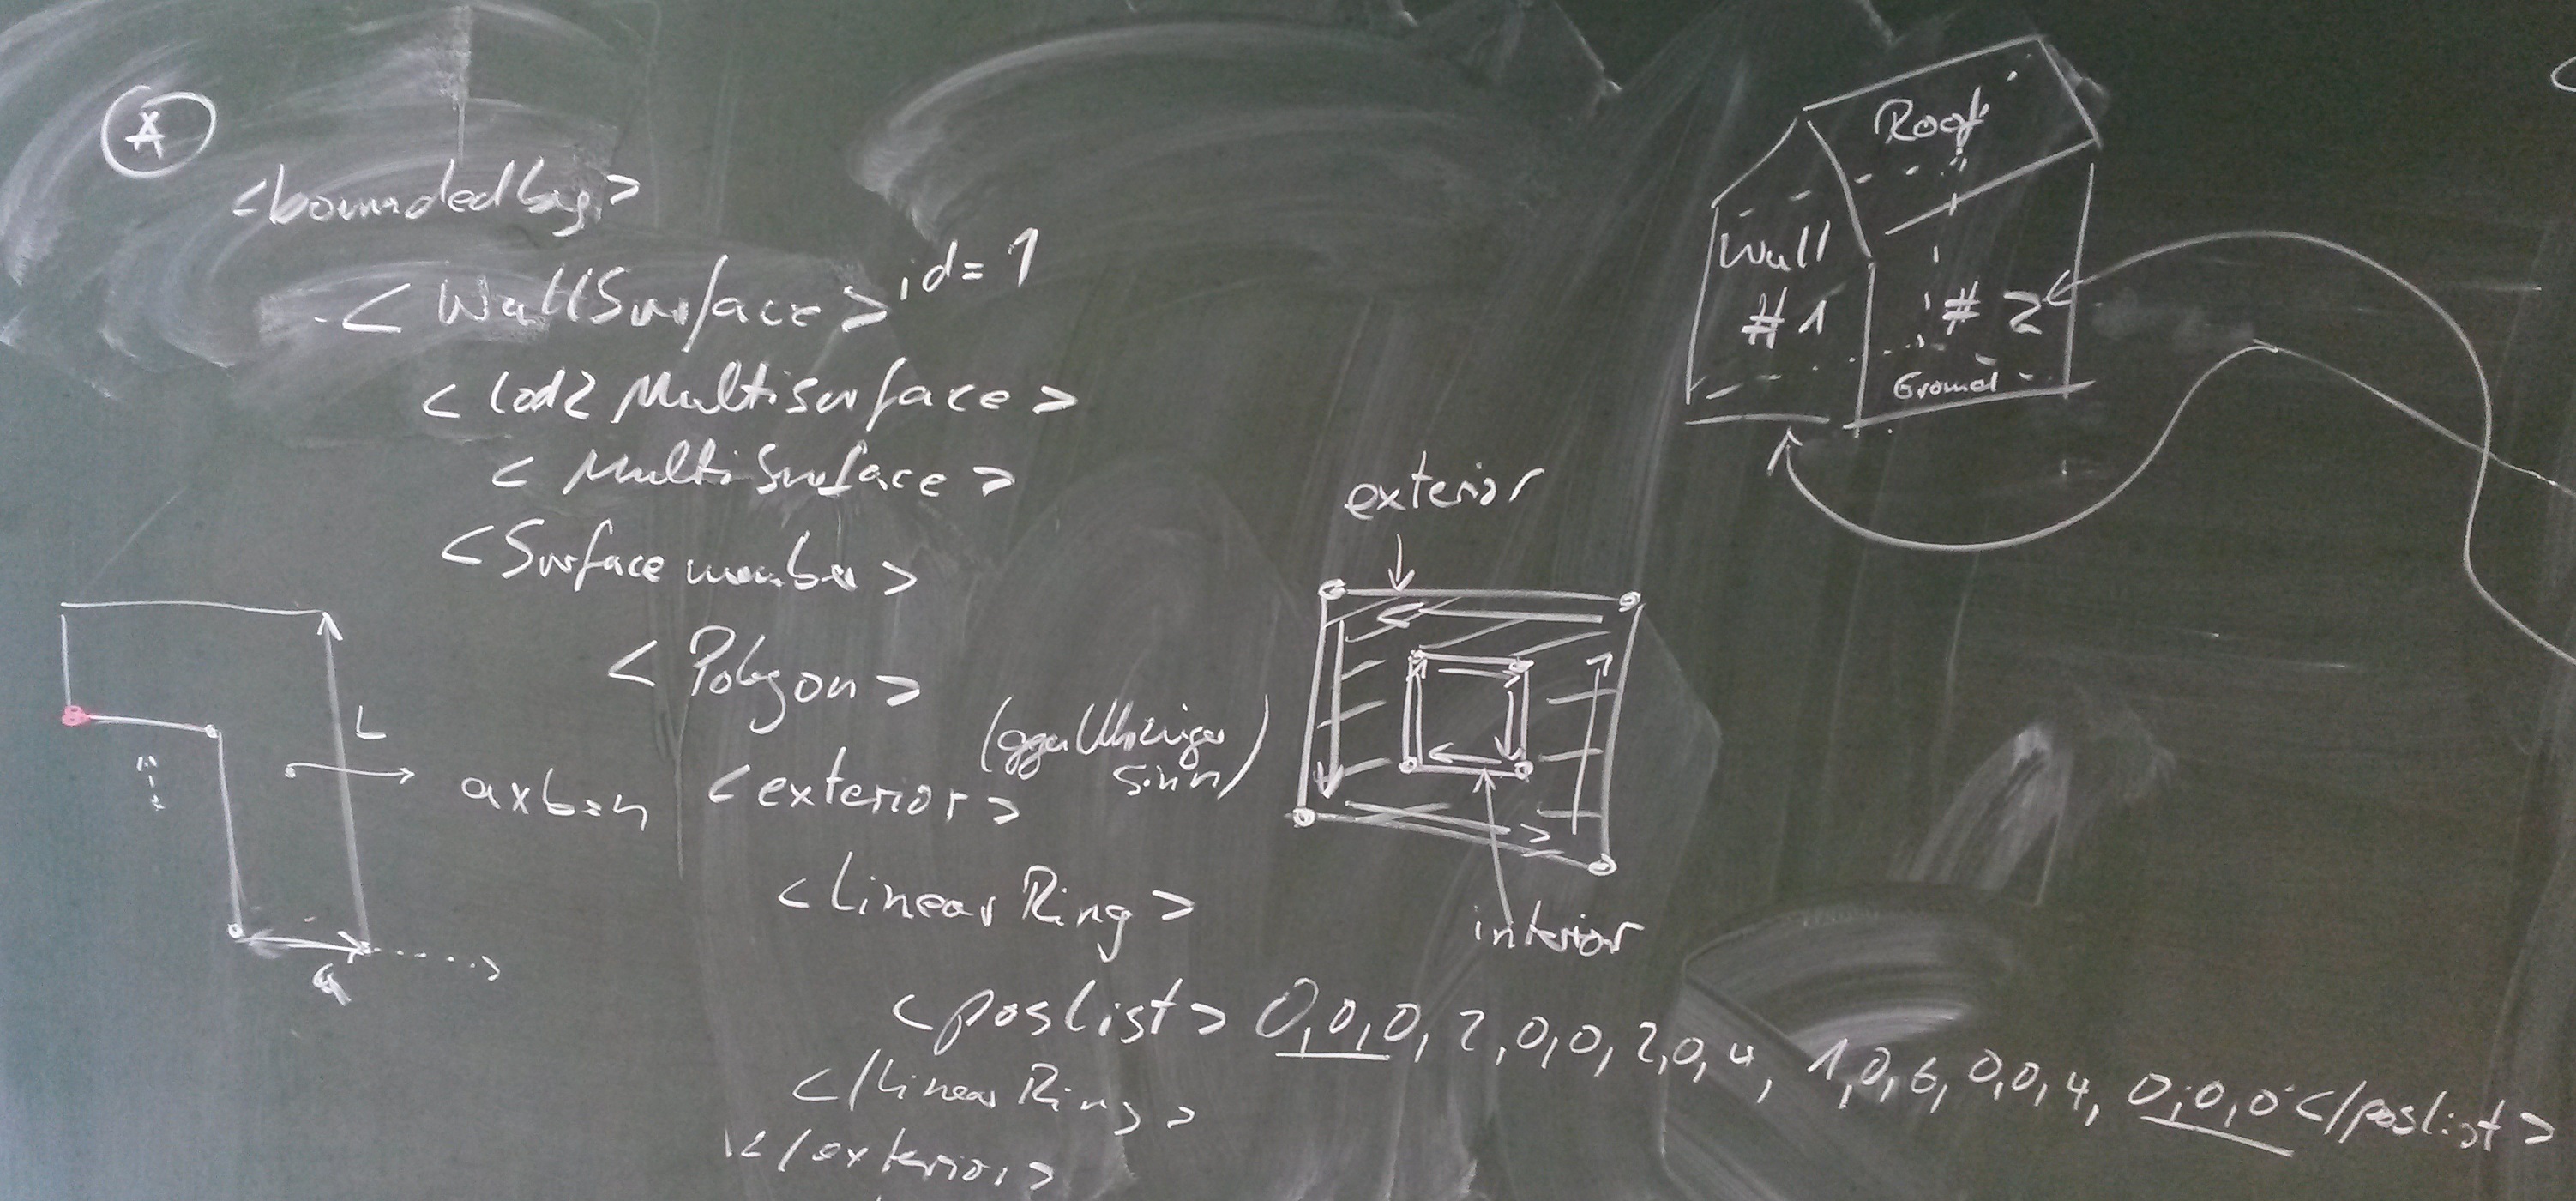 A
<boundedby>
<WallSurface> id=1
<lod2 Multisurface>
<MultiSurface>
<Surface member>
<Polygon>
(ggn Uhrzeiger
sinn)
<exterior>
<LinearRing>
<poslist> 0,0,0,2,0,0,2,0,4,1,0,6,0,0,4,0,0,0</poslist>
</LinearRing>
</exterior>
L
axb=n
a
exterior
interior
Roof
Wall
#1
#2
Ground